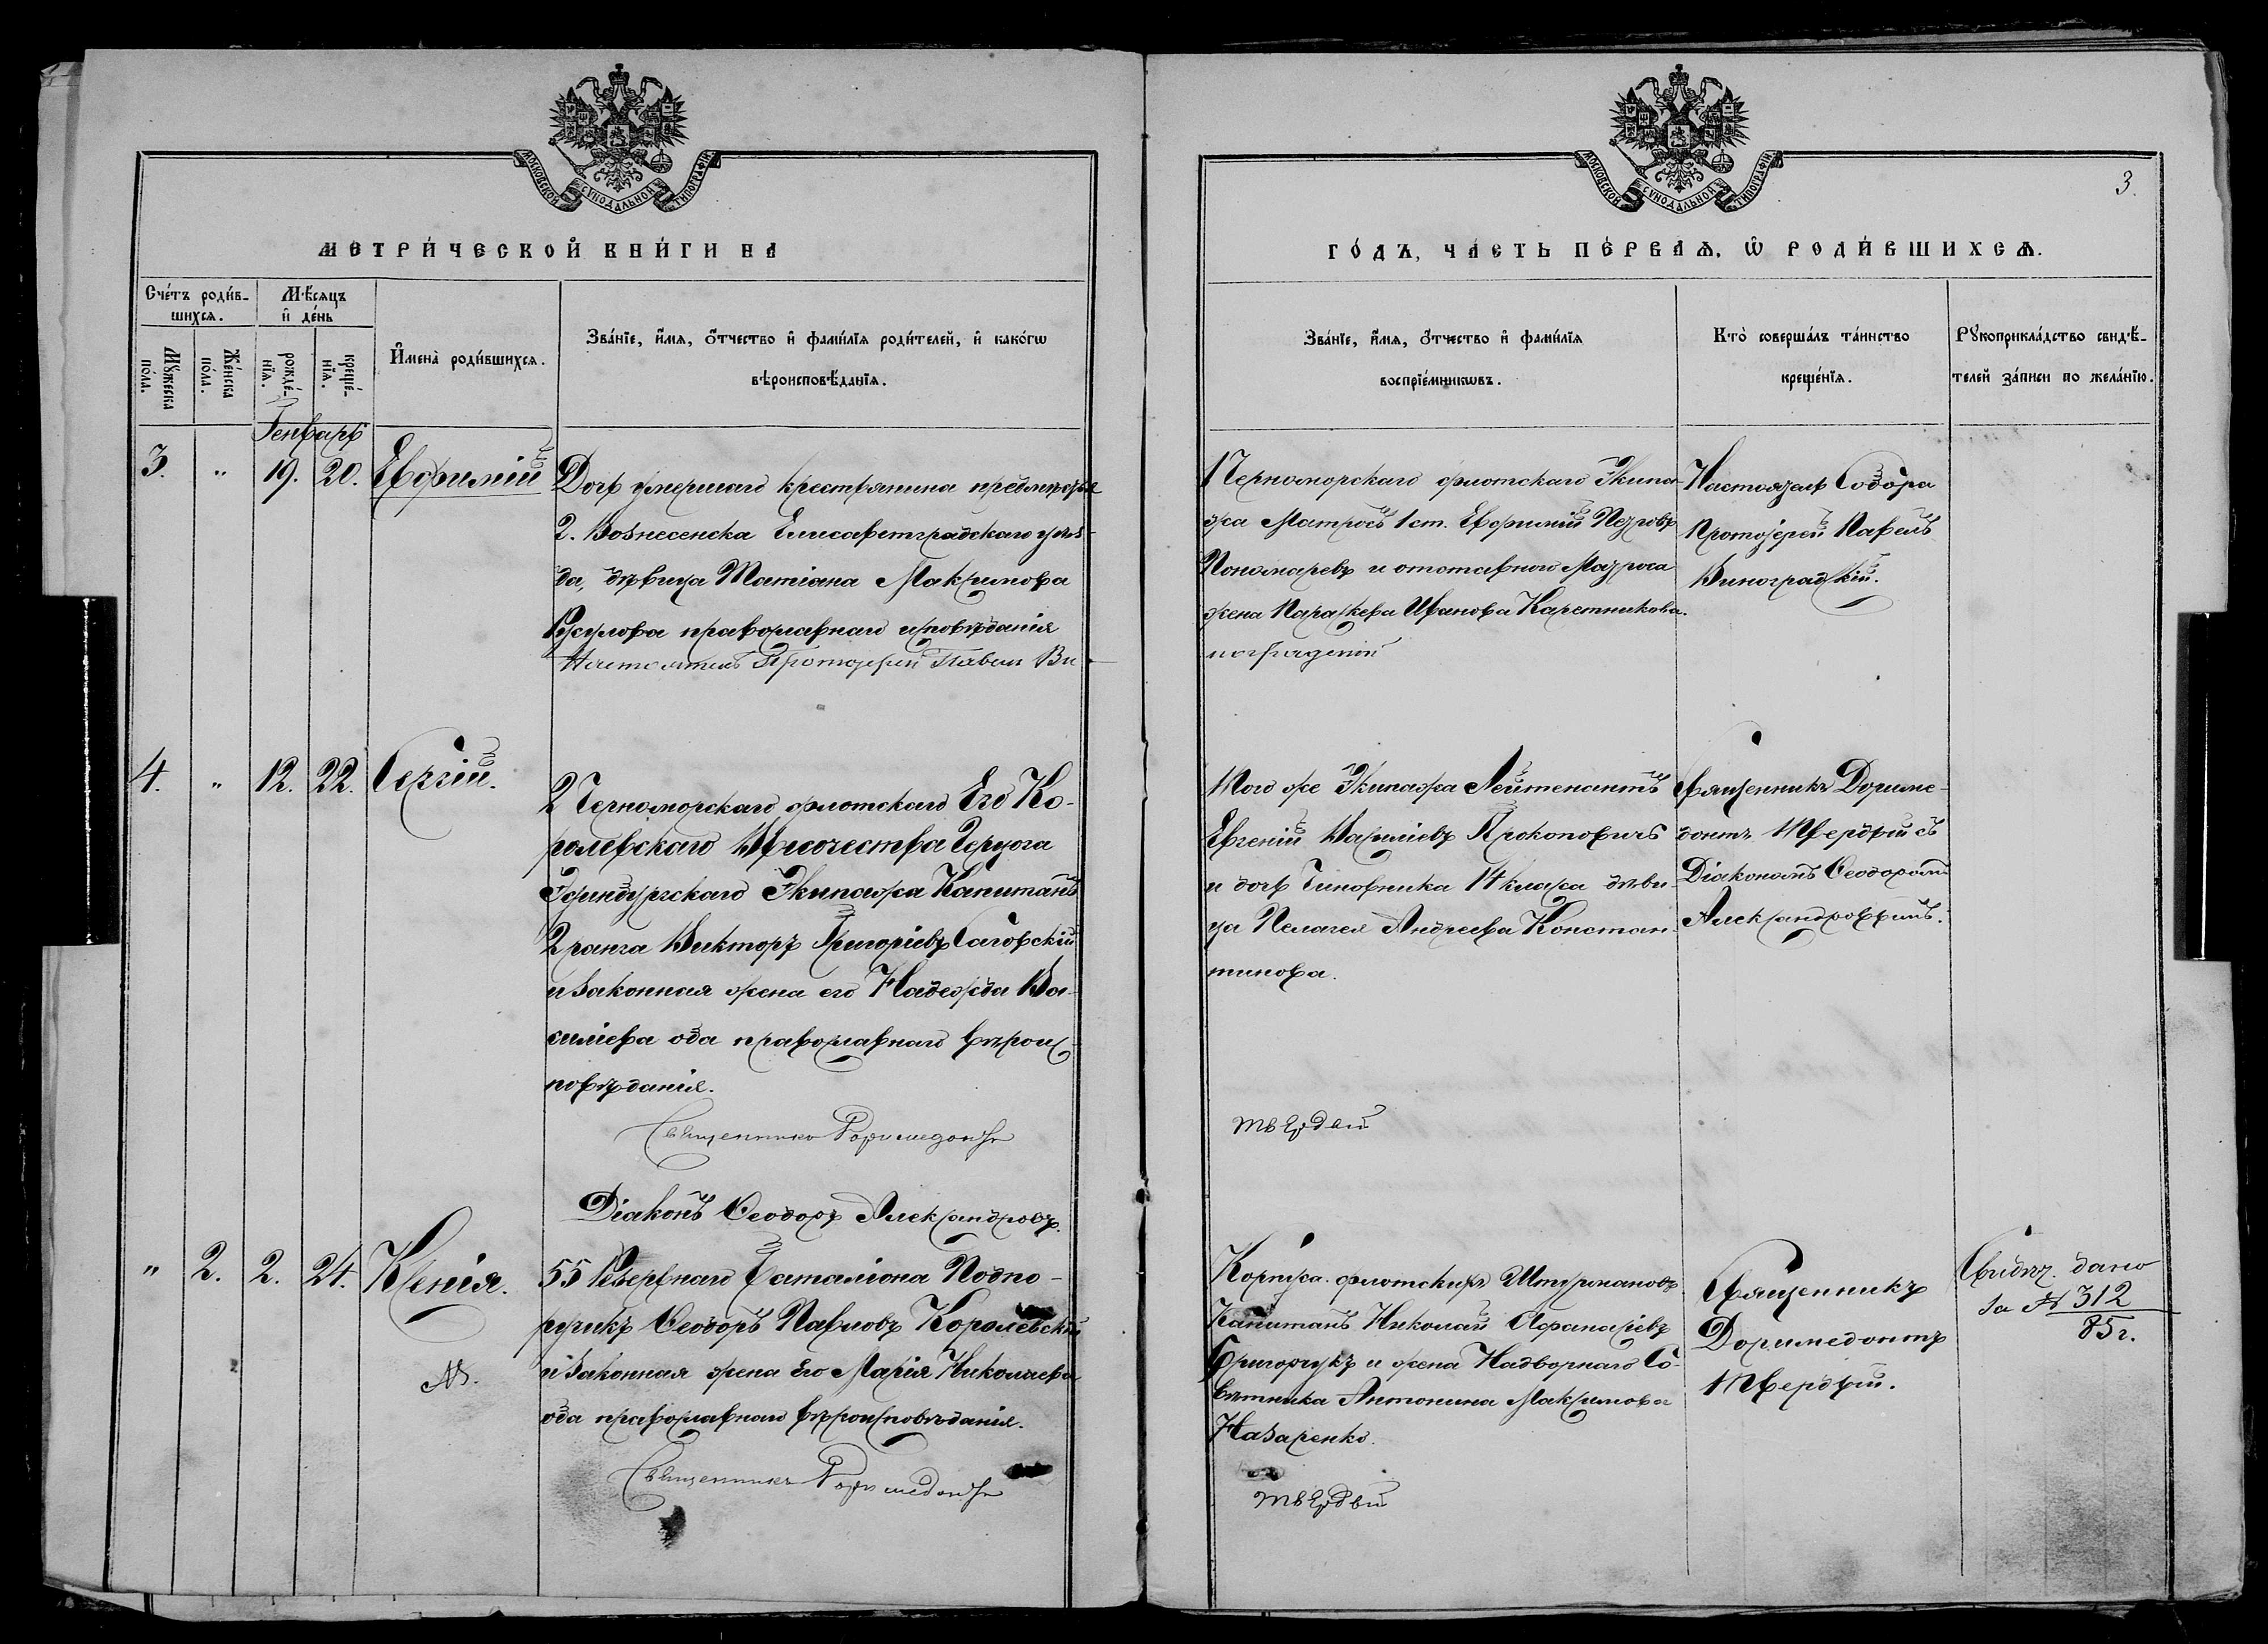 МОСКОВСКОЙ СѴНОДАЛЬНОЙ ТИПОГРАФІИ
МЕТРИ́ЧЕСКОЙ КНИ́ГИ НА
Сче́тъ роди́в-
шихсѧ.
Мѣ́сѧцъ
и҆ де́нь
Мꙋ́жеска
по́ла.
Же́нска
по́ла.
рожде́-
нїѧ.
креще́-
нїѧ.
И҆мена̀ роди́вшихсѧ.
Зва́нїе, и҆́мѧ, ѻ҆́тчество и҆ фами́лїѧ роди́телей, и҆ како́гѡ
вѣроисповѣ́данїѧ.
Генварь
3. " 19. 20. Евфимій
Дочь умершаго крестьянина предмѣстья
г. Вознесенска Елисаветградскаго уѣз-
да, дѣвица Татіана Максимова
православнаго исповѣданія
Настоятель Протоіерей Павелъ Ви-
4. " 12. 22. Сергій.
2 Черноморскаго флотскаго Его Ко-
ролевскаго Высочества Герцога
Эдинбургскаго Экипажа Капитанъ
2 ранга Викторъ Григоріевъ
и законная жена его Надежда Ва-
силіева оба православнаго вѣроис-
повѣданія.
Священникъ Доримедонтъ
Діаконъ Ѳеодоръ Александровъ.
" 2. 2. 24. Ксенія.
NB.
55 Резервнаго Баталіона Подпо-
ручикъ Ѳеодоръ Павловъ Королевскій
и законная жена его Марія Николаева
оба православнаго вѣроисповѣданія.
Священникъ Доримедонтъ
МОСКОВСКОЙ СѴНОДАЛЬНОЙ ТИПОГРАФІИ
3.
ГО́ДЪ, ЧА́СТЬ ПЕ́РВАѦ, Ѡ҆ РОДИ́ВШИХСѦ.
Зва́нїе, и҆́мѧ, ѻ҆́тчество и҆ фами́лїѧ
воспрїе́мникѡвъ.
Кто̀ соверша́лъ та́инство
креще́нїѧ.
Рꙋкоприкла́дство свидѣ́-
телей за́писи по жела́нїю.
1 Черноморскаго флотскаго Экипа-
жа Матросъ 1 ст. Евфимій Петровъ
Пономаревъ и отставного Матроса
жена Параскева Иванова Каретникова.
ноградскій
Настоятель Собора
Протоіерей Павелъ
Виноградскій.
Того же Экипажа Лейтенантъ
Евгеній Василіевъ Прокоповичъ
и дочь Чиновника 14 класса дѣви-
ца Пелагея Андреева Констан-
тинова.
Твердый
Священникъ Дориме-
донтъ Твердый съ
Діакономъ Ѳеодоромъ
Александровымъ.
Корпуса флотскихъ Штурмановъ
Капитанъ Николай Аѳанасіевъ
Григорчукъ и жена Надворнаго Со-
вѣтника Антонина Максимова
Назаренко.
Твердый
Священникъ
Доримедонтъ
Твердый.
Свидѣт. дано
за № 312
85 г.